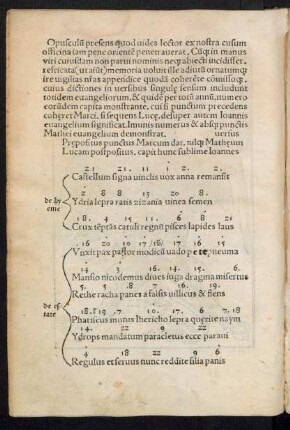 Opusculū presens quod uides lector ex nostra cusum
officina iam pene orientē penetrauerat. Cūqʒ in manus
viri cuiusdam non parui nominis neqʒ abiecti incidisset.
refricata (ut aiūt) memoria voluit ille adiutū ornatumqʒ
ire uigilias nr̄as appendice quodā coherēte cōmissoqʒ.
cuius dictiones in uersibus singule sensum includunt
totidem euangeliorum, & quidē per totū annū. numero
eorūdem capita monstrante. cui si punctum precedens
coheret Marci. si sequens Luce, desuper autem Ioannis
euangelium significat. Imunis numerus & absqʒ punctis
Mathei euangelium demonstrat. uersus
Prepositus punctus Marcum dat. nulqʒ Matheum
Lucam postpositus. capit hunc sublime Ioannes
21 21. 11 1 2. 2.
Castellum signa uinclis uox anna remansit
de hy
eme
2 8 8 13 20 8.
Ydria lepra ratis zizania uinea semen
18. 4 15 11. 6 8 21
Crux tēptās catuli regnū pisces lapides laus
.16 20 10 17/18/ 17 16 15
Vnxit pax pastor modicū uado pete pneuma
14 3 16. 14. 15. 6.
Mansio nicodemus diues fuga dragma misertus
de es
tate
5 .8 7 16. 19.
Rethe racha panes a falsis uillicus & flens
18. 10. 7. 6. 7.
14. 22 9 22
Ydrops mandatum paracletus ecce paraui
4 18 22 9 6
Regulus et seruus nunc reddite filia panis